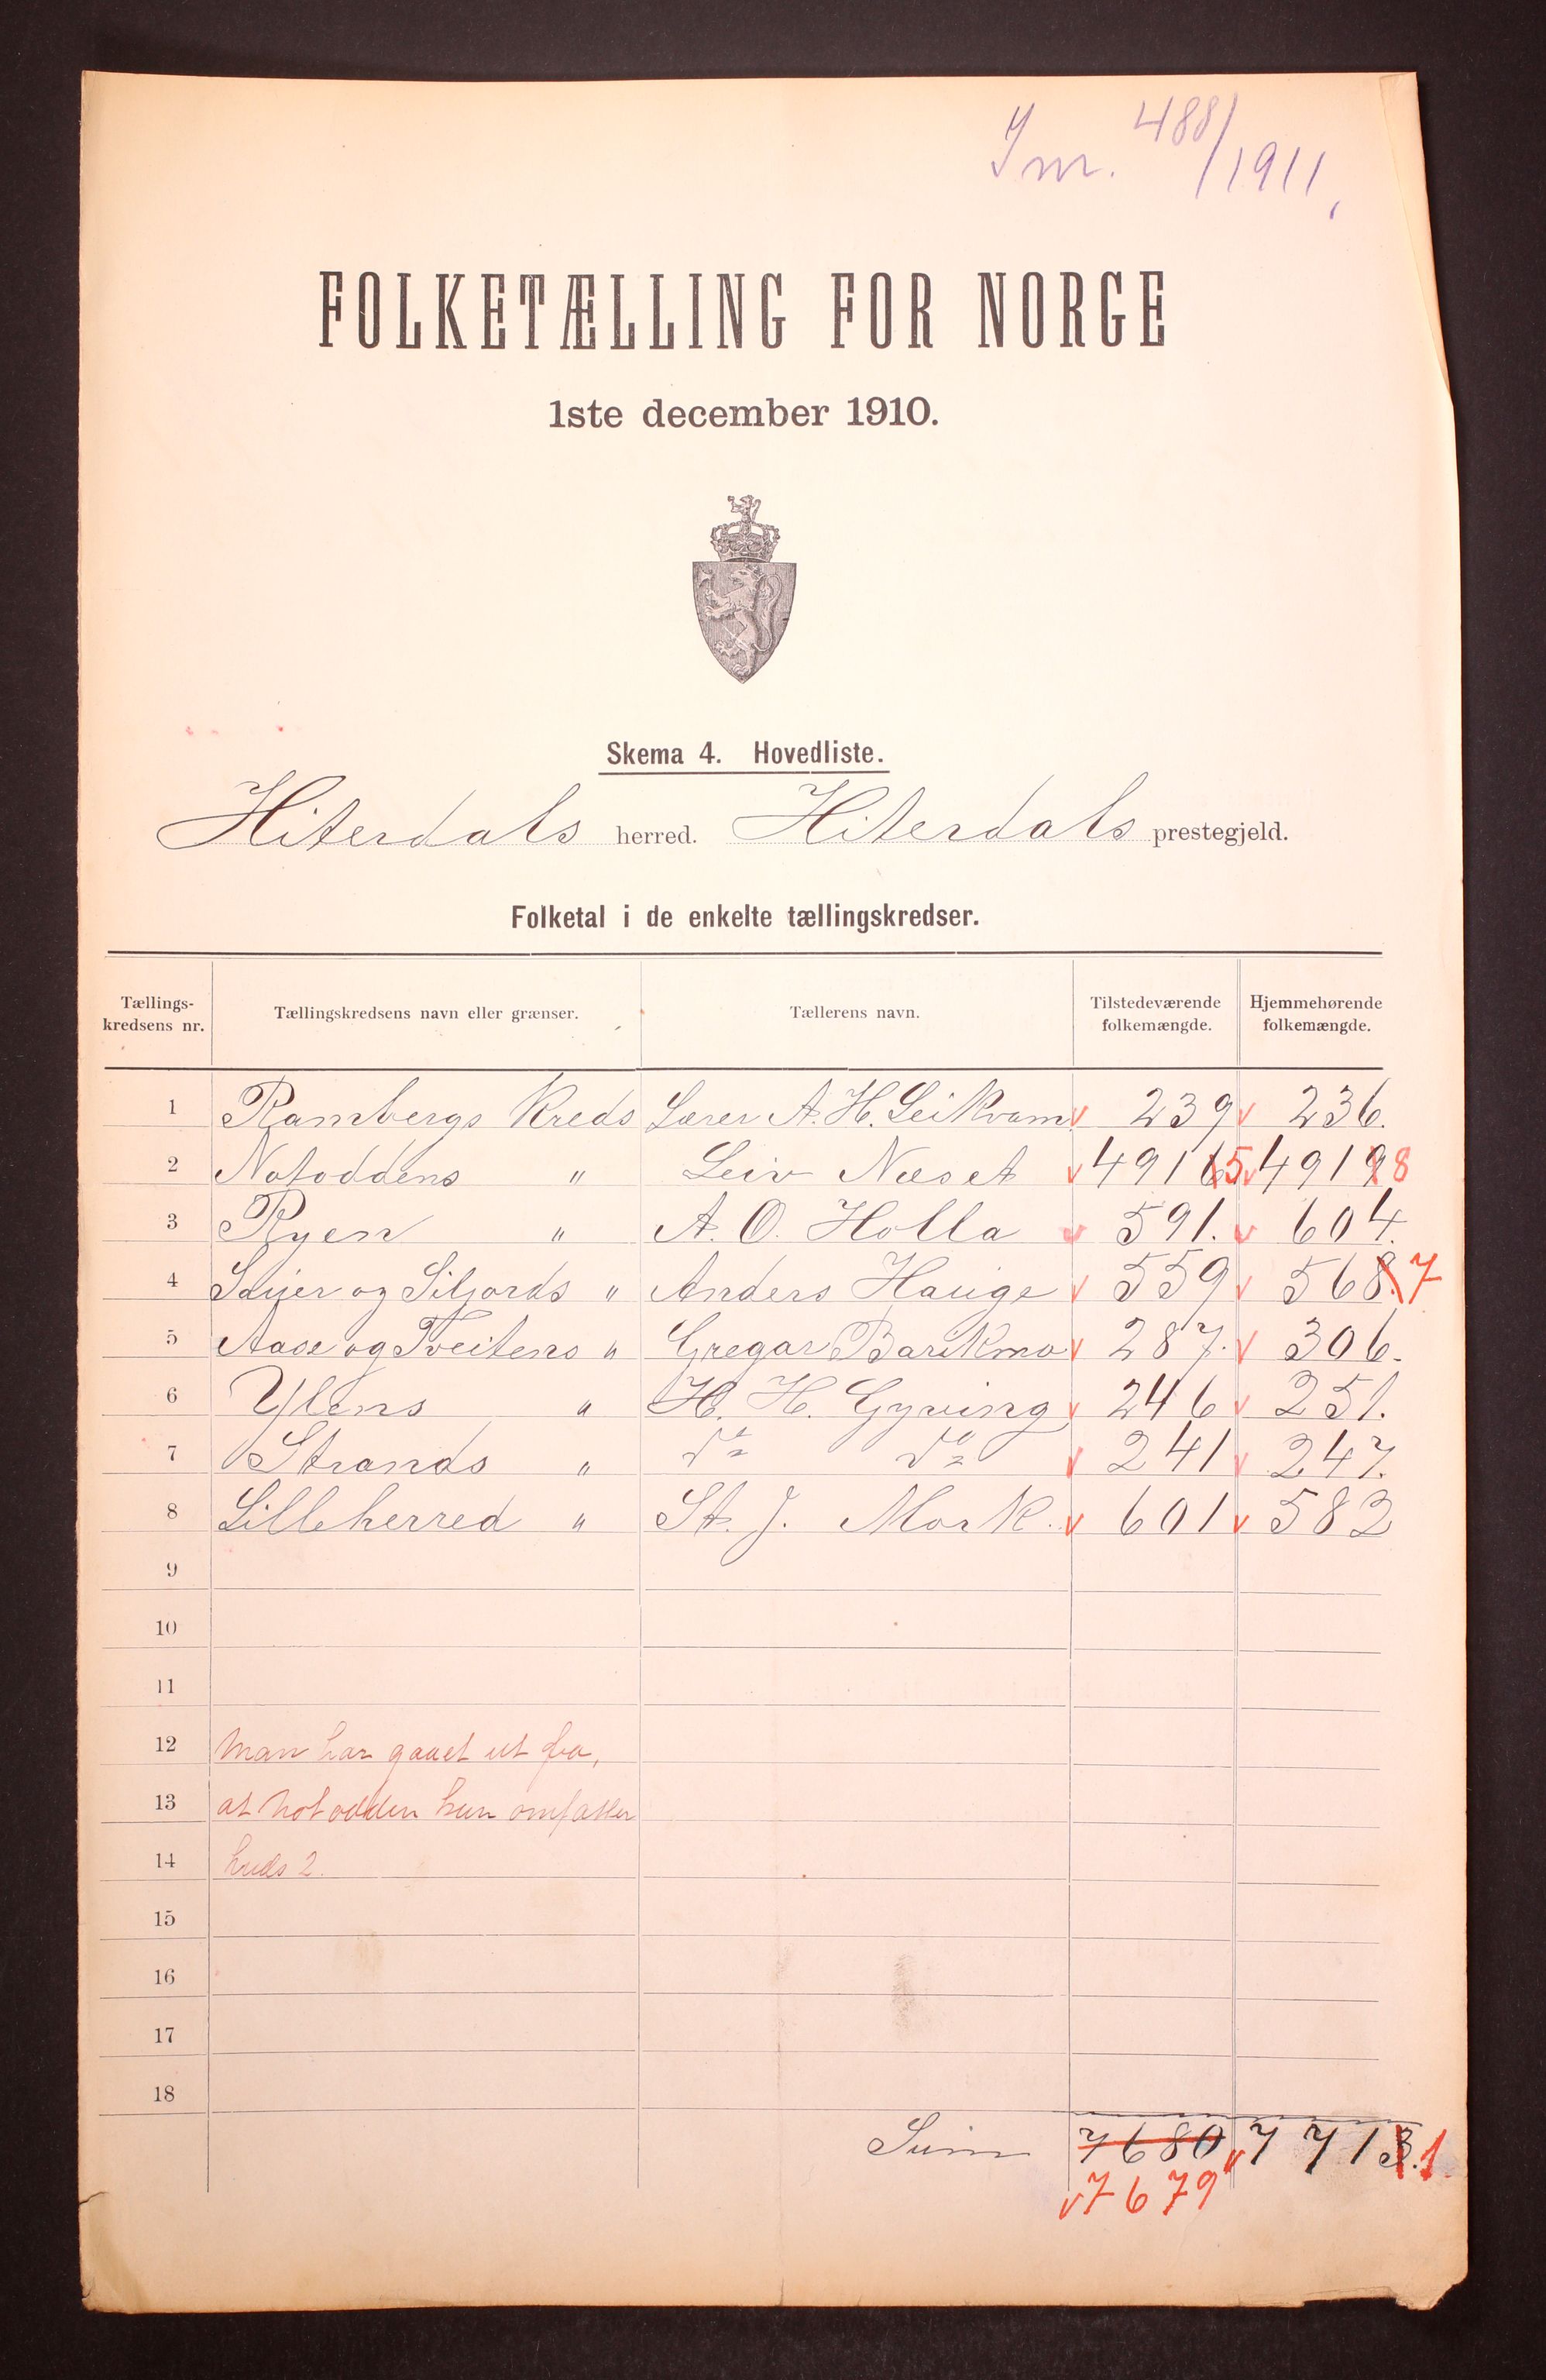 J nr. 488/1911.
FOLKETÆLLING FOR NORGE
1ste december 1910.
Skema 4. Hovedliste.
Hiterdals herred. Hiterdals prestegjeld.
Folketal i de enkelte tællingskredser.
Tællings-kredsens nr. Tællingskredsens navn eller grænser. Tællerens navn. Tilstedeværende folkemængde. Hjemmehørende folkemængde.
1 Rambergs Kreds Lærer A. H. Leikvam v 239 v 236.
2 Notoddens " Leiv Næset v 4916 5 v 4919 8
3 Ryen " A. O. Holla v 591. v 604.
4 og Siljords " Anders Hauge v 559 v 568. 7
5 Aase og Tveitens " Gregar Barikmo v 287. v 306.
6 Ylens " H. H. Gyving v 246 v 251.
7 Strands " do do v 241 v 247.
8 Lilleherred " St. J. Mork. v 601 v 582
9
10
11
12 Man har gaaet ut fra,
13 at Notodden kun omfatter
14 kreds 2.
15
16
17
18
Sum 7680 v 7713. 1.
v 7679